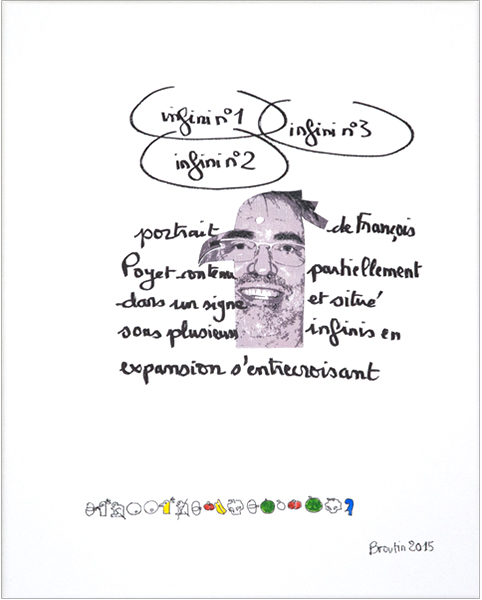 infini n°1
infini n°3
infini n°2
portrait de François
Poyet contenu partiellement
dans un signe et situé
sous plusieurs infinis en
expansion s'entrecroisant
Broutin 2015